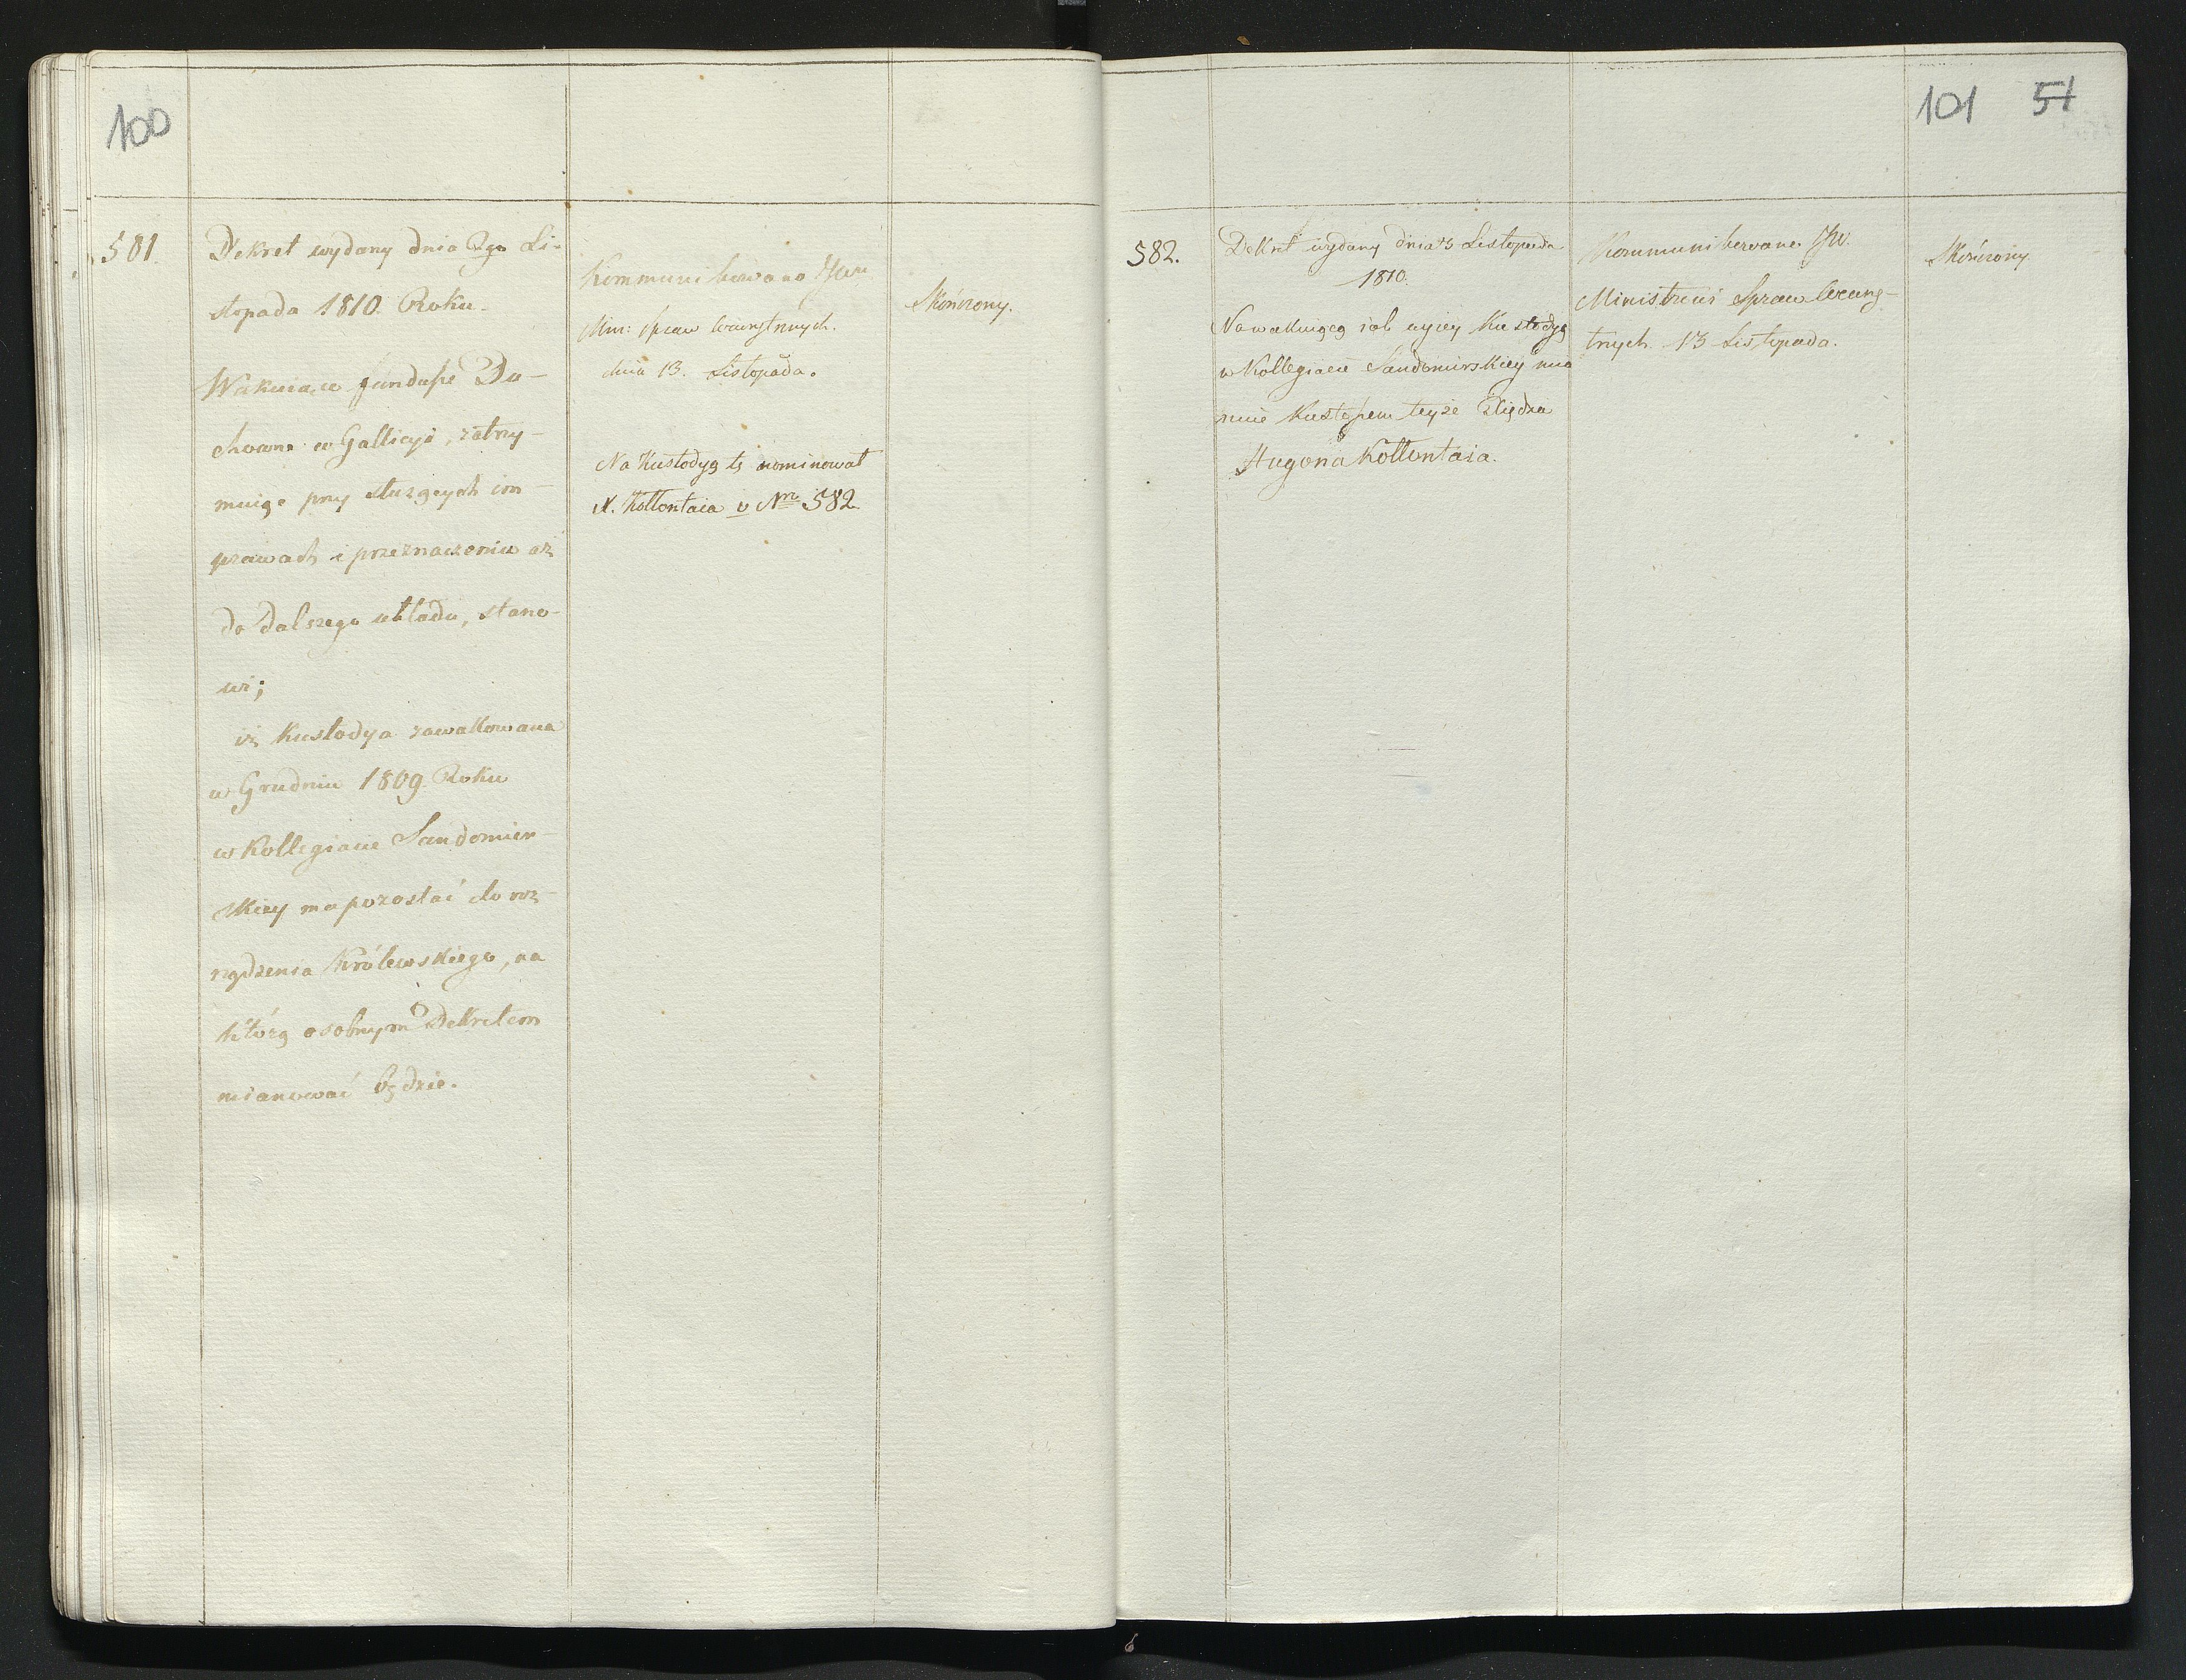 100
581.
Dekret wydany dnia 2go Li-
stopada 1810. Roku.
Wakuiące fundusze Du-
chowne w Gallicyi, zatrzy-
muiąc przy służących im
prawach i przeznaczeniu aż
do dalszego układu, stano-
wi;
iż Kustodya zawakowana
w Grudniu 1809. Roku
w Kollegiacie Sandomier-
skiey ma pozostać do roz-
rządzenia Królewskiego, na
którą osobnym Dekretem
mianować będzie.
Kommunikowano JWu
Min: Spraw Wewnętrznych.
dnia 13. Listopada.
Na Kustodyą tę nominował
X. Kołłontaia v Nro 582
Skończony.
101 51
582.
Dekret wydany dnia 3 Listopada
1810.
Na wakuiącą Kustodyą
w Kollegiacie Sandomirskiey mia
nuie Kustoszem teyże Xiędza
Hugona Kołłontaia.
Kommunikowane JW.
Ministrowi Spraw Wewnę-
trznych 13 Listopada.
Skończony